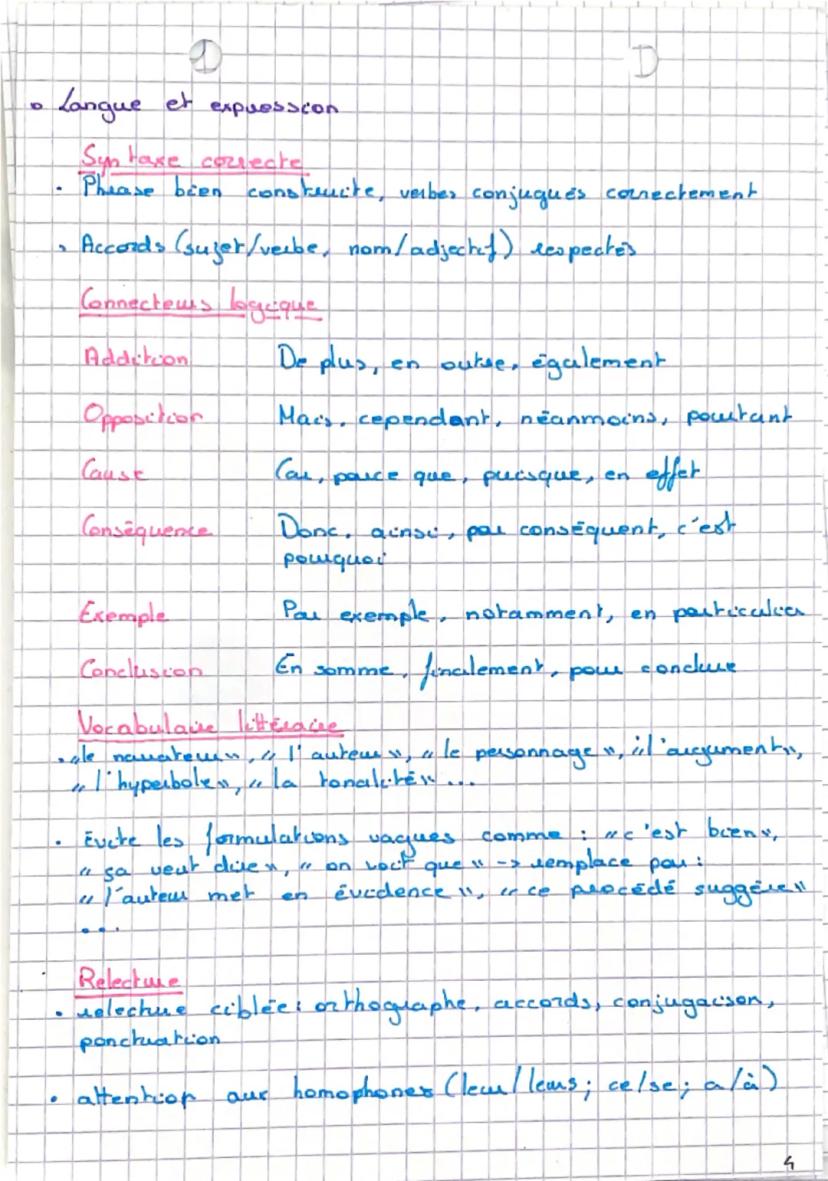 • Langue et expression
Syntaxe correcte
• Phrase bien construite, verbes conjugués correctement
• Accords (sujet/verbe, nom/adjectif) respectés
Connecteurs logique
Addition De plus, en outre, également
Opposition Mais, cependant, néanmoins, pourtant
Cause Car, parce que, puisque, en effet
Conséquence Donc, ainsi, par conséquent, c'est
pourquoi
Exemple Par exemple, notamment, en particulier
Conclusion En somme, finalement, pour conclure
Vocabulaire littéraire
• "le narrateur", "l'auteur", "le personnage", "l'argument",
"l'hyperbole", "la tonalité"...
• Évite les formulations vagues comme : "c'est bien",
"sa veut dire", "on voit que" -> remplace par :
"l'auteur met en évidence", "ce procédé suggère"
...
Relecture
• relecture ciblée : orthographe, accords, conjugaison,
ponctuation
• attention aux homophones (leur/leurs ; ce/se ; a/à)
4